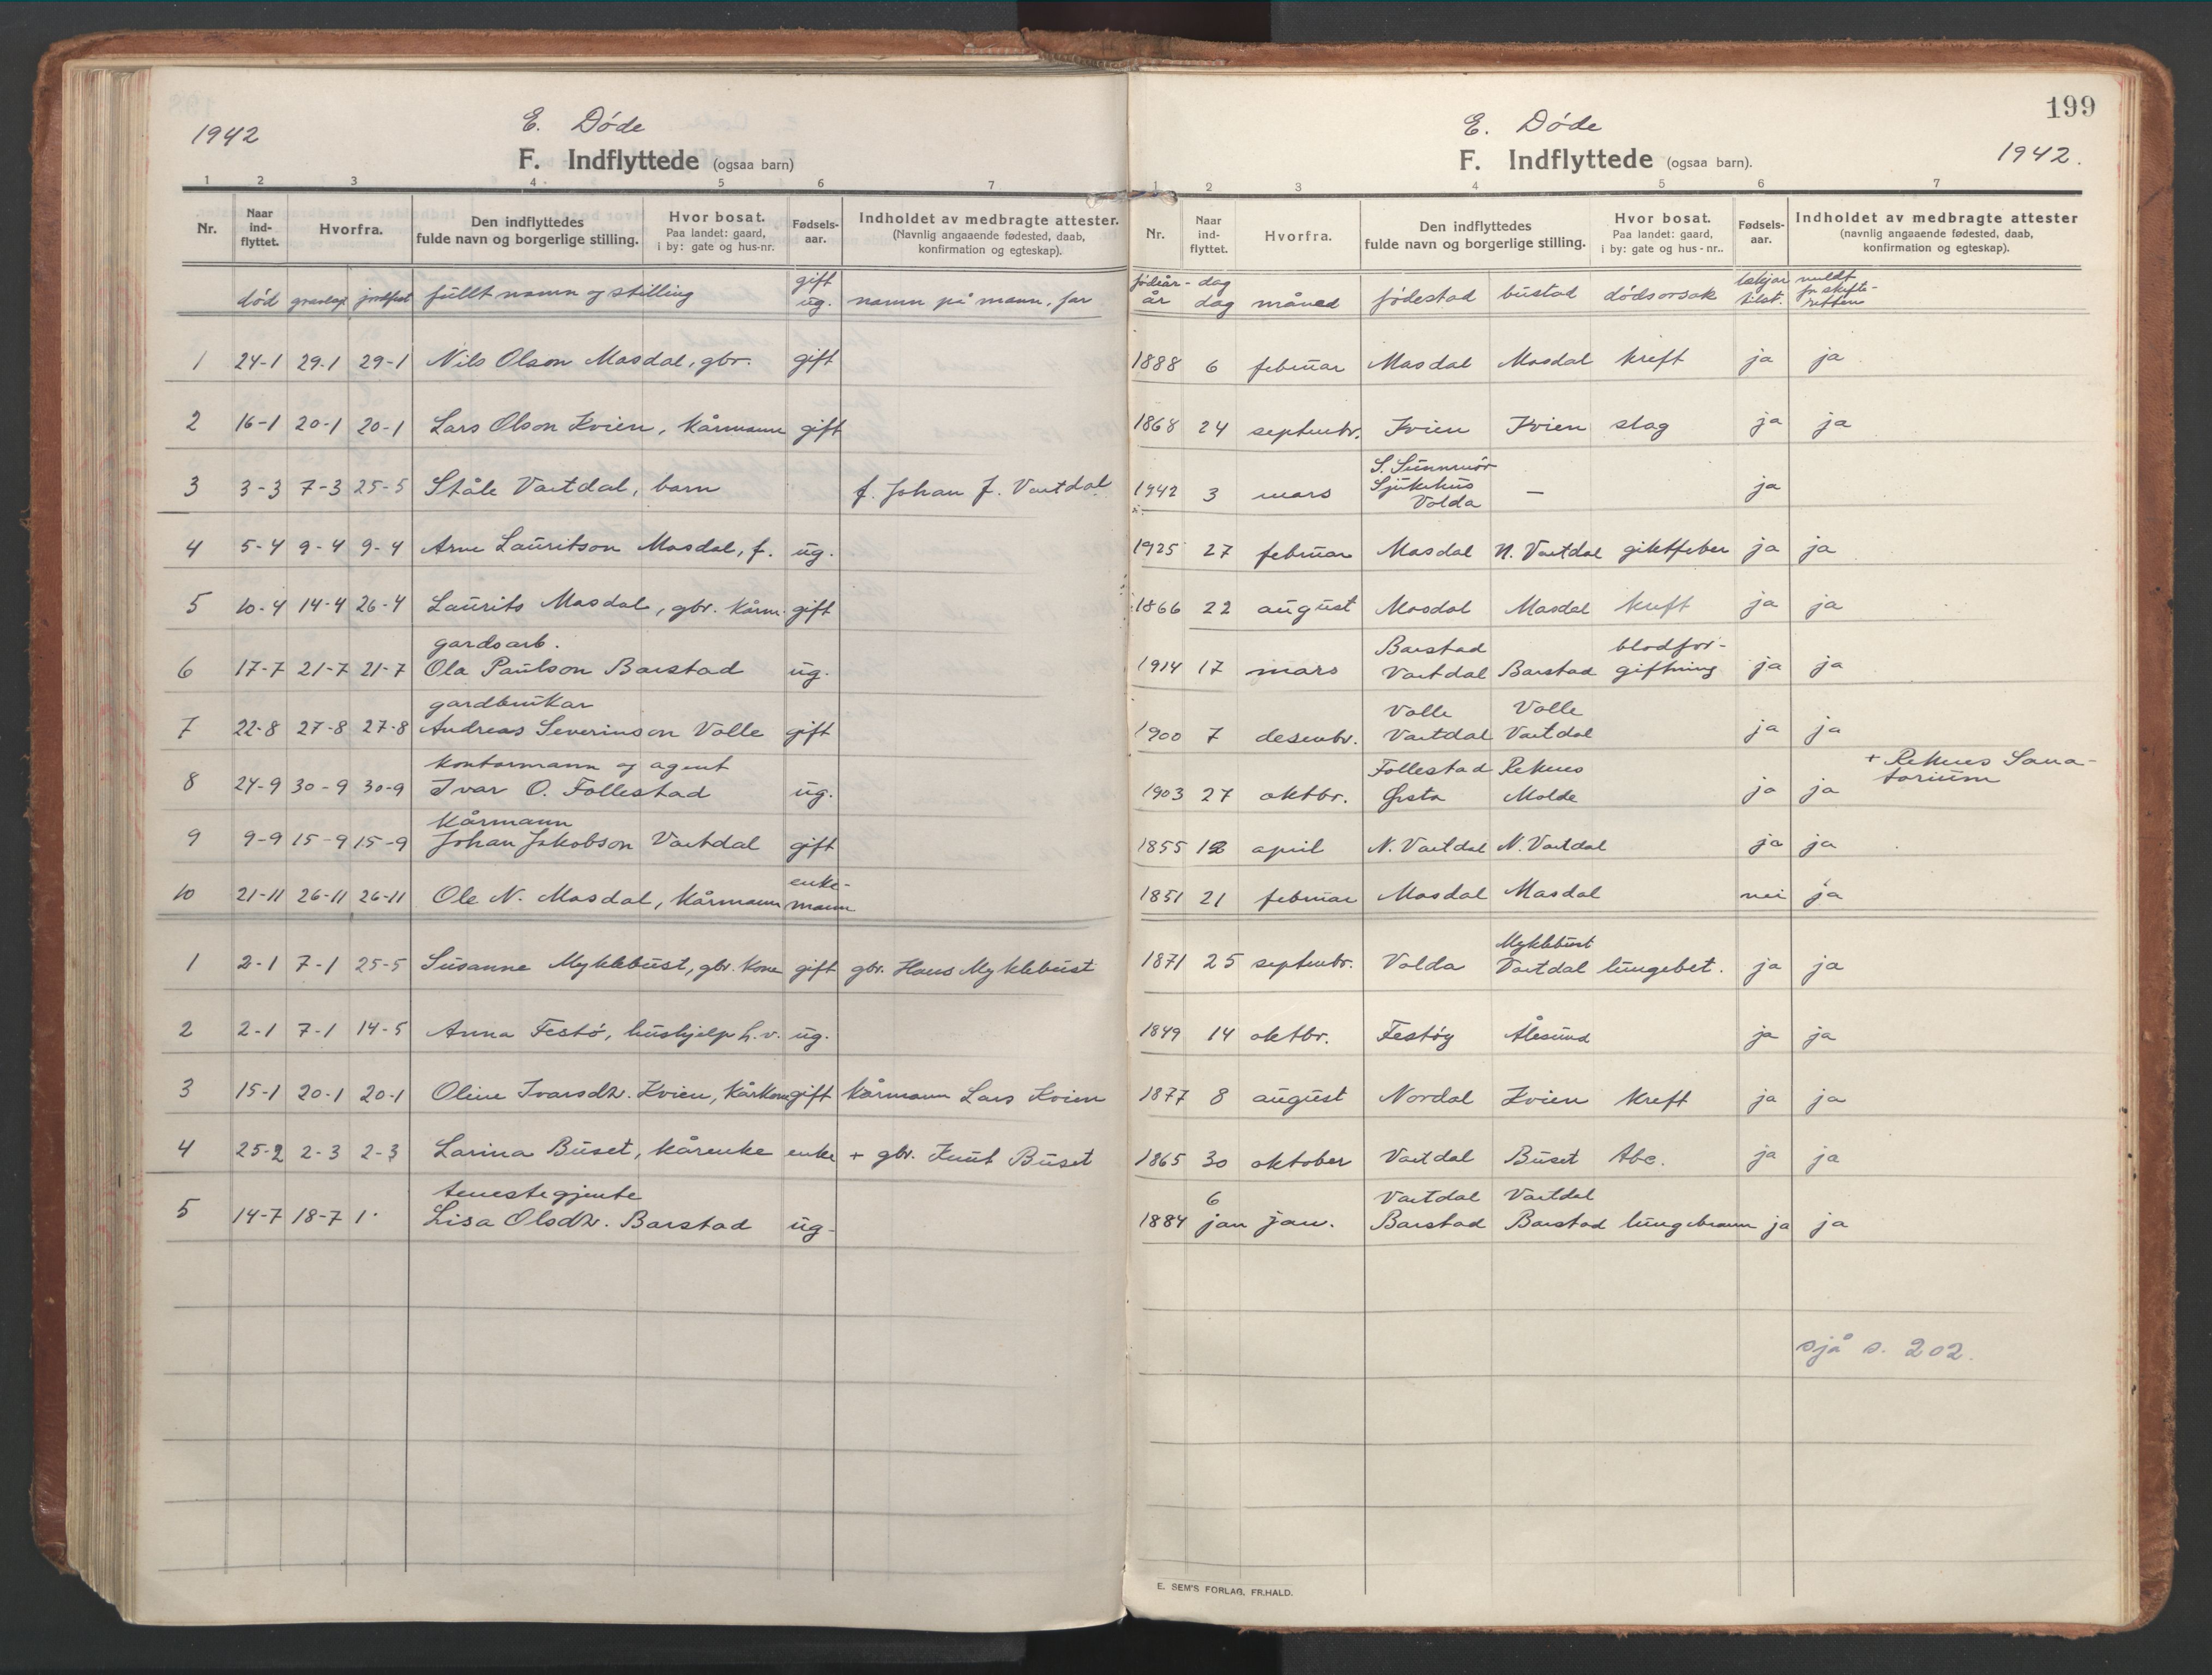 1942
E. Døde
F. Indflyttede (ogsaa barn)
1 2 3 4 5 6 7
Nr. Naar ind-flyttet. Hvorfra. Den indflyttedes fulde navn og borgerlige stilling. Hvor bosat. Paa landet: gaard, i by: gate og hus-nr. Fødsels-aar. Indholdet av medbragte attester. (Navnlig angaaende fødested, daab, konfirmation og egteskap).
død gravlagt jordfest fullt namn og stilling gift ug. namn på mann, far
1 24-1 29-1 29-1 Nils Olson Masdal, gbr. gift
2 16-1 20-1 20-1 Lars Olson Kvien, kårmann gift
3 3-3 7-3 25-5 Ståle Vartdal, barn f. Johan J. Vartdal
4 5-4 9-4 9-4 Arne Lauritson Masdal, f. ug.
5 10-4 14-4 26-4 Laurits Masdal, gbr. kårm. gift
gardsarb.
6 17-7 21-7 21-7 Ola Paulson Barstad ug.
gardbrukar
7 22-8 27-8 27-8 Andreas Severinson Valle gift
kontormann og agent
8 24-9 30-9 30-9 Ivar O. Follestad ug.
kårmann
9 9-9 15-9 15-9 Johan Jakobson Vartdal gift
10 21-11 26-11 26-11 Ole N. Masdal, kårmann enke-mann
1 2-1 7-1 25-5 Susanne Myklebust, gbr. kone gift gbr. Hans Myklebust
2 2-1 7-1 14-5 Anna Festø, hushjelp h.v. ug.
3 15-1 20-1 20-1 Oline Ivarsdtr. Kvien, kårkone gift kårmann Lars Kvien
4 25-2 2-3 2-3 Larina Buset, kårenke enke + gbr. Knut Buset
tenestegjente
5 14-7 18-7 1. Lisa Olsdtr. Barstad ug.
199
E. Døde
F. Indflyttede (ogsaa barn).
1942.
1 2 3 4 5 6 7
Nr. Naar ind-flyttet. Hvorfra. Den indflyttedes fulde navn og borgerlige stilling. Hvor bosat. Paa landet: gaard, i by: gate og hus-nr.. Fødsels-aar. Indholdet av medbragte attester (navnlig angaaende fødested, daab, konfirmation og egteskap).
fødeår- dag
år dag måned fødestad bustad dødsorsak lækjar tilst. meldt fr skifte-retten
1888 6 februar Masdal Masdal kreft ja ja
1868 24 septembr. Kvien Kvien slag ja ja
1942 3 mars S. Sunnmør Sjukehus Volda — ja
1925 27 februar Masdal N. Vartdal giktfeber ja ja
1866 22 august Masdal Masdal kreft ja ja
1914 17 mars Barstad Vartdal Barstad blodfor-giftning ja ja
1900 7 desembr. Valle Vartdal Valle Vartdal ja ja
1903 27 oktbr. Follestad Ørsta Reknes Molde ja ja + Reknes Sana-torium
1855 12 april N. Vartdal N. Vartdal ja ja
1851 21 februar Masdal Masdal nei ja
1871 25 septembr. Volda Myklebust Vartdal lungebet. ja ja
1849 14 oktbr. Festøy Ålesund ja ja
1877 8 august Nordal Kvien kreft ja ja
1865 30 oktober Vartdal Buset tbc. ja ja
6 Vartdal Vartdal
1884 jan jan. Barstad Barstad lungebrann ja ja
sjå s. 202.
E. SEM'S FORLAG, FR.HALD.